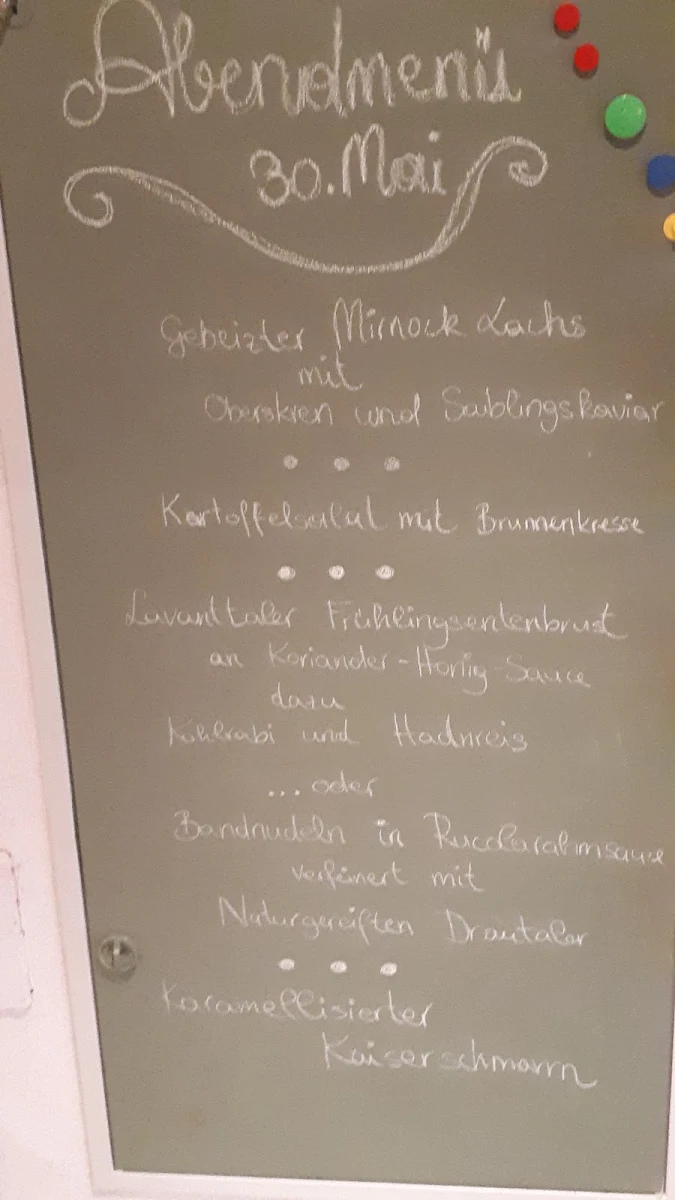 Abendmenü
30. Mai
Gebeizter Mirnock Lachs
mit
Oberskren und Saiblingskaviar
Kartoffelsalat mit Brunnenkresse
Lavanttaler Frühlingsentenbrust
an Koriander-Honig-Sauce
dazu
Kohlrabi und Hadnreis
... oder
Bandnudeln in Rucolarahmsauce
verfeinert mit
Naturgereiften Drautaler
Karamellisierter
Kaiserschmarrn